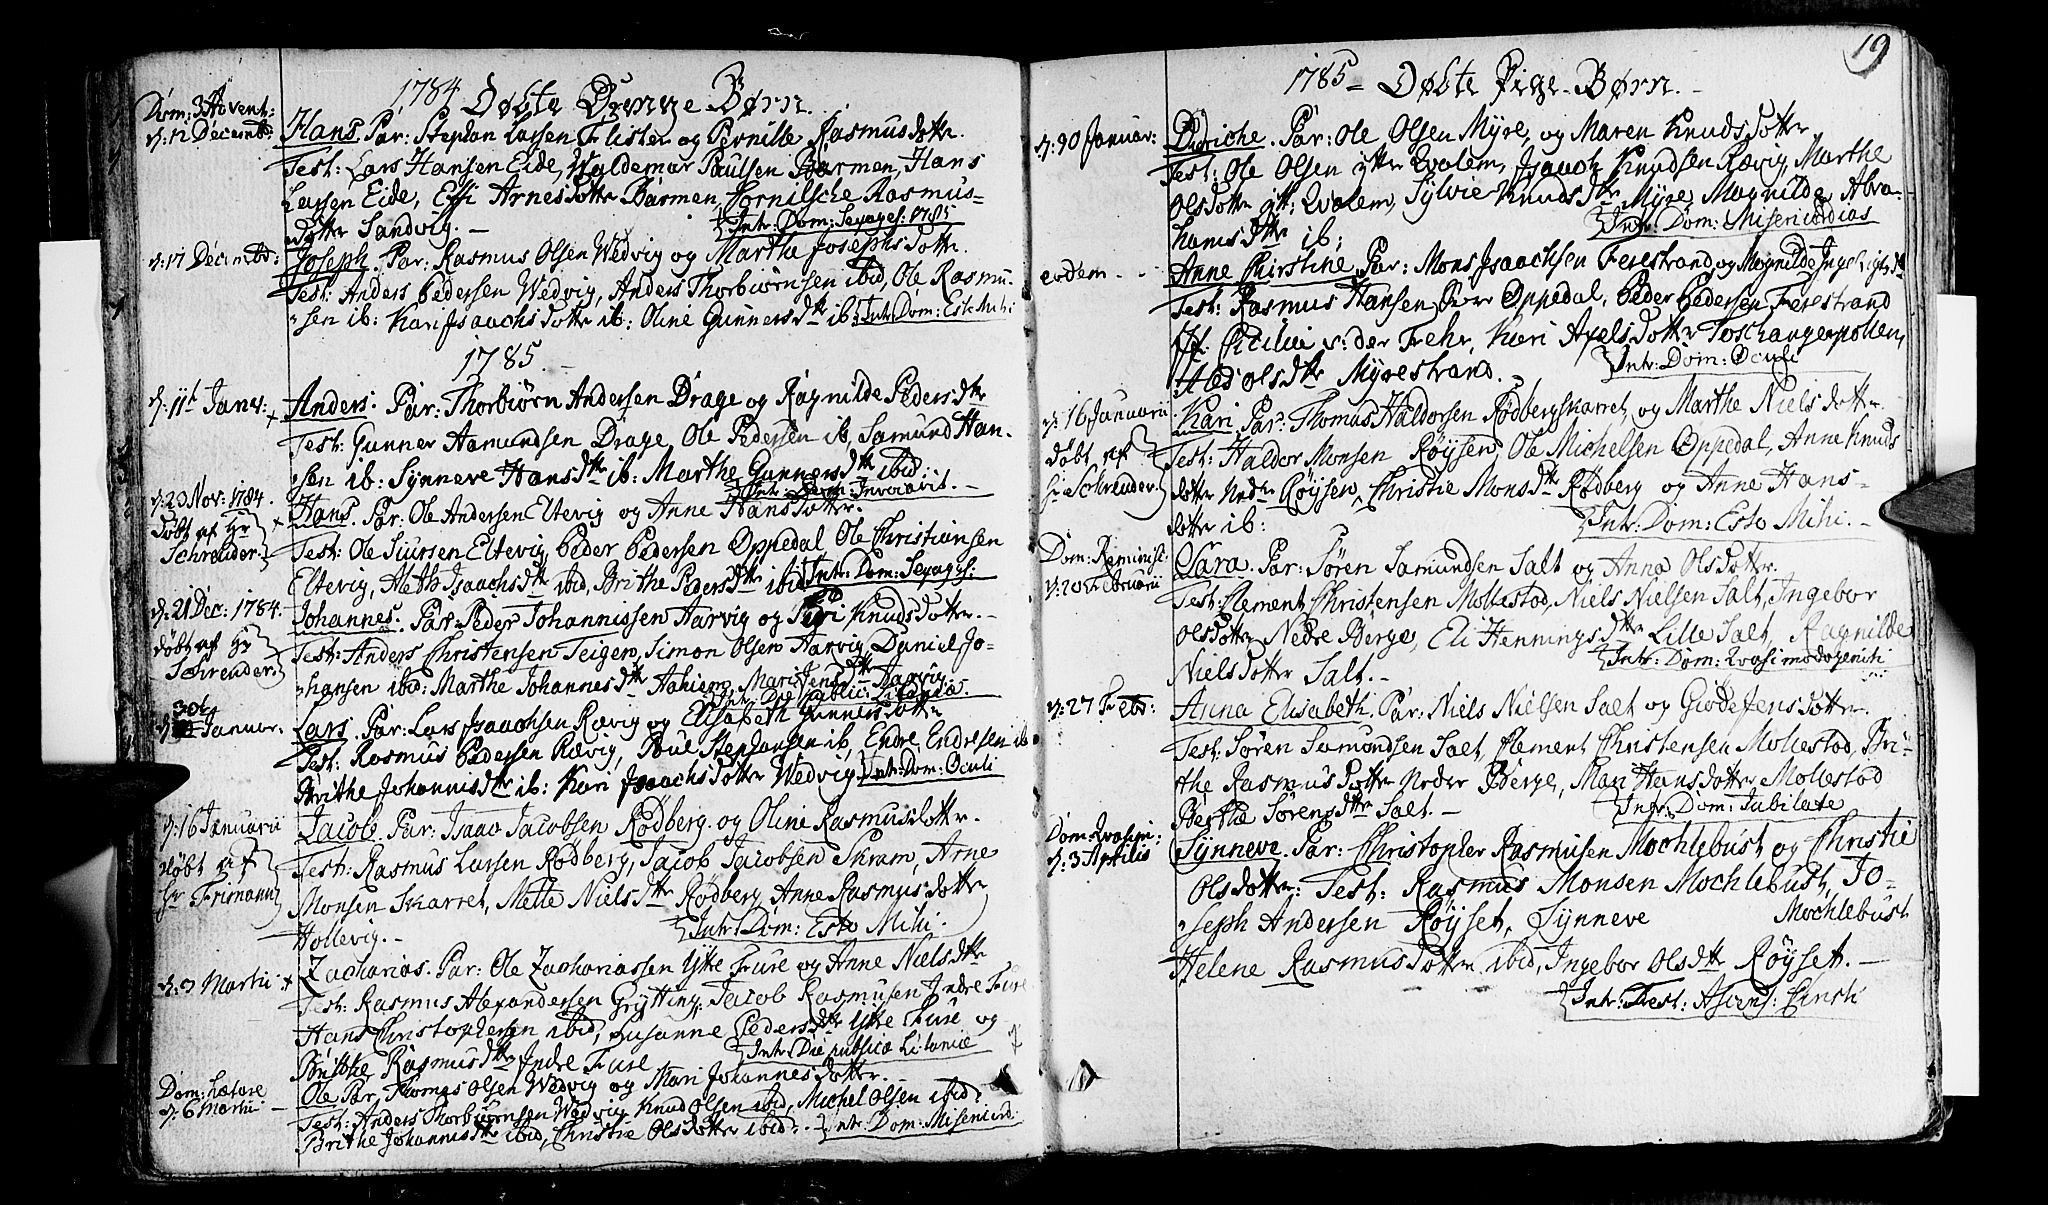 1784 Døbte Drenge Børn.
Dom: 3 Advent:
d: 12 Decemb:
Hans. Par: Stephan Larsen Flister og Pernille Rasmusdotter.
Test: Lars Hansen Eide, Waldemar Paulsen Barmen, Hans
Larsen Eide, Elsi Arnesdotter Barmen, Rasmus=
dotter Sandvig. —
Intr: Dom: Sexages: 1785
d: 17 Decembr:
Joseph. Par: Rasmus Olsen Wedvig og Martha Josephsdotter.
Test: Anders Pedersen Wedvig, Anders Thorbiørnsen ibid, Ole Rasmu-
sen ib: Kari Isaachsdotter ib: Oline Gunnersdtr ib: Intr: Dom: Esto Mihi
1785.
d: 11te Januar:
Anders. Par: Thorbiørn Andersen Drage og Ragnilde Pedersdtr
Test: Gunner Aamundsen Drage, Ole Pedersen ib, Samund Han-
sen ib: Synneve Hansdtr ib: Marthe Gunnersdtr ibid:
Intr: Dom: Invocavit. —
d: 20 Nov: 1784.
døbt af Hr
Schreuder.
Hans. Par: Ole Andersen Eltevig og Anne Hansdotter.
Test: Ole Siursen Eltevig, Peder Pedersen Oppedal Ole Christiansen
Eltevig, Aleth Isaachsdtr ibid, Brithe Pedersdtr ibid Intr: Dom: Sexages:
d: 21 Dec: 1784.
døbt af Hr
Schreuder.
Johannes. Par: Peder Johannissen Aarvig og Kari Knudsdotter. —
Test: Anders Christensen Teigen, Simon Olsen Aarvig, Daniel Jo-
hansen ibid: Marthe Johannesdtr Aahiem, Mari Jensdtr Aarvig.
Intr: Die Public: Litaniæ.
30te
d: Januar.
Lars. Par: Lars Isaachsen Rævig og Elisabeth Gunnersdotter
Test: Rasmus Pedersen Rævig, Poul Stephansen ib, Endre Endresen ib
Brithe Johannisdtr ib: Kari Isaachsdotter Wedvig Intr: Dom: Oculi
d: 16 Januarii
døbt af
Hr Frimann
Jacob. Par: Isaac Jacobsen Rødberg og Oline Rasmusdotter.
Test: Rasmus Larsen Rødberg, Jacob Jacobsen Skram, Arne
Monsen Skarret, Mette Nielsdtr Rødberg Anne Rasmusdotter
Hollevig. —
Intr: Dom: Esto Mihi.
d: 3 Martii
Zacharias. Par: Ole Zachariassen Ytre Fure og Anne Nielsdtr
Test: Rasmus Alexandersen Grytting, Jacob Rasmusen Indre Fure
Hans Christophersen ibid, Susanne Pedersdtr Ytre Fure og
Brithe Rasmusdtr Indre Fure
Intr: Die publicæ Litaniæ
Dom: Lætare
d: 6 Martii —
Ole Par, Thomas Olsen Wedvig og Mari Johannesdotter.
Test: Anders Thorbiørnsen Wedvig Knud Olsen ibid, Michel Olsen ibid:
Brithe Johannisdtr ibid, Christie Olsdotter ibid: Intr: Dom: Misericord:
19
1785 = Døbte Pige-Børn. —
Januar:
Didriche. Par: Ole Olsen Myre, og Maren Knudsdotter
Test: Ole Olsen ytter Qvalem, Isaach Knudsen Rævig, Marthe
Olsdotter ytt: Qvalem, Sylvie Knudsdtr Myre, Magnilde Abra-
hamsdtr ib:
Intr: Dom: Misericordias
eodem - -
Anne Christine. Par: Mons Isaachsen Ferestrand og Magnilde
Test: Rasmus Hansen Oppedal, Peder Pedersen Ferestrand
Jf. Cicilie v: der Fehr, Kari Axelsdotter Toschangerpollen,
Olsdtr Myrestrand.
Intr: Dom: Oculi
d: 16 Januarii
døbt af
Hr Schreuder.
Kari. Par: Thomas Haldorsen Rødbergskarret, og Marthe Nielsdotter.
Test: Haldor Monsen Røysen, Ole Michelsen Oppedal, Anne Knuds
dotter Nedr Røysen, Christie Monsdtr Rødberg og Anne Hans-
dotter ib:
Intr: Dom: Esto Mihi. —
Dom: Reminisc:
d: 20 Februarii
Sara. Par: Søren Samundsen Salt og Anna Olsdotter.
Test: Clement Christensen Mollestad, Niels Nielsen Salt, Ingebor
Olsdotter Nedre Berge, Eli Henningsdtr Lille Salt, Ragnilde
Nielsdotter Salt. —
Intr: Dom: Qvasimodogeniti
d: 27 Febr:
Anna Elisabeth. Par: Niels Nielsen Salt og Giøde Jensdotter.
Test: Søren Samundsen Salt, Clement Christensen Mollestad, Bri-
the Rasmusdotter Neder Berge, Mari Hansdotter Mollestad
Berthe Sørensdtr Salt. —
Intr: Dom: Jubilate
Dom: Qvasim:
d: 3 Aprilis
Synneve. Par: Christopher Rasmusen Mochlebust og Christie
Olsdotter: Test: Rasmus Monsen Mochlebust, Jo-
seph Andersen Røyset, Synneve Mochlebust
Helene Rasmusdotter ibid, Ingebor Olsdtr Røyset. —
Intr: Fest: Ascens: Christi